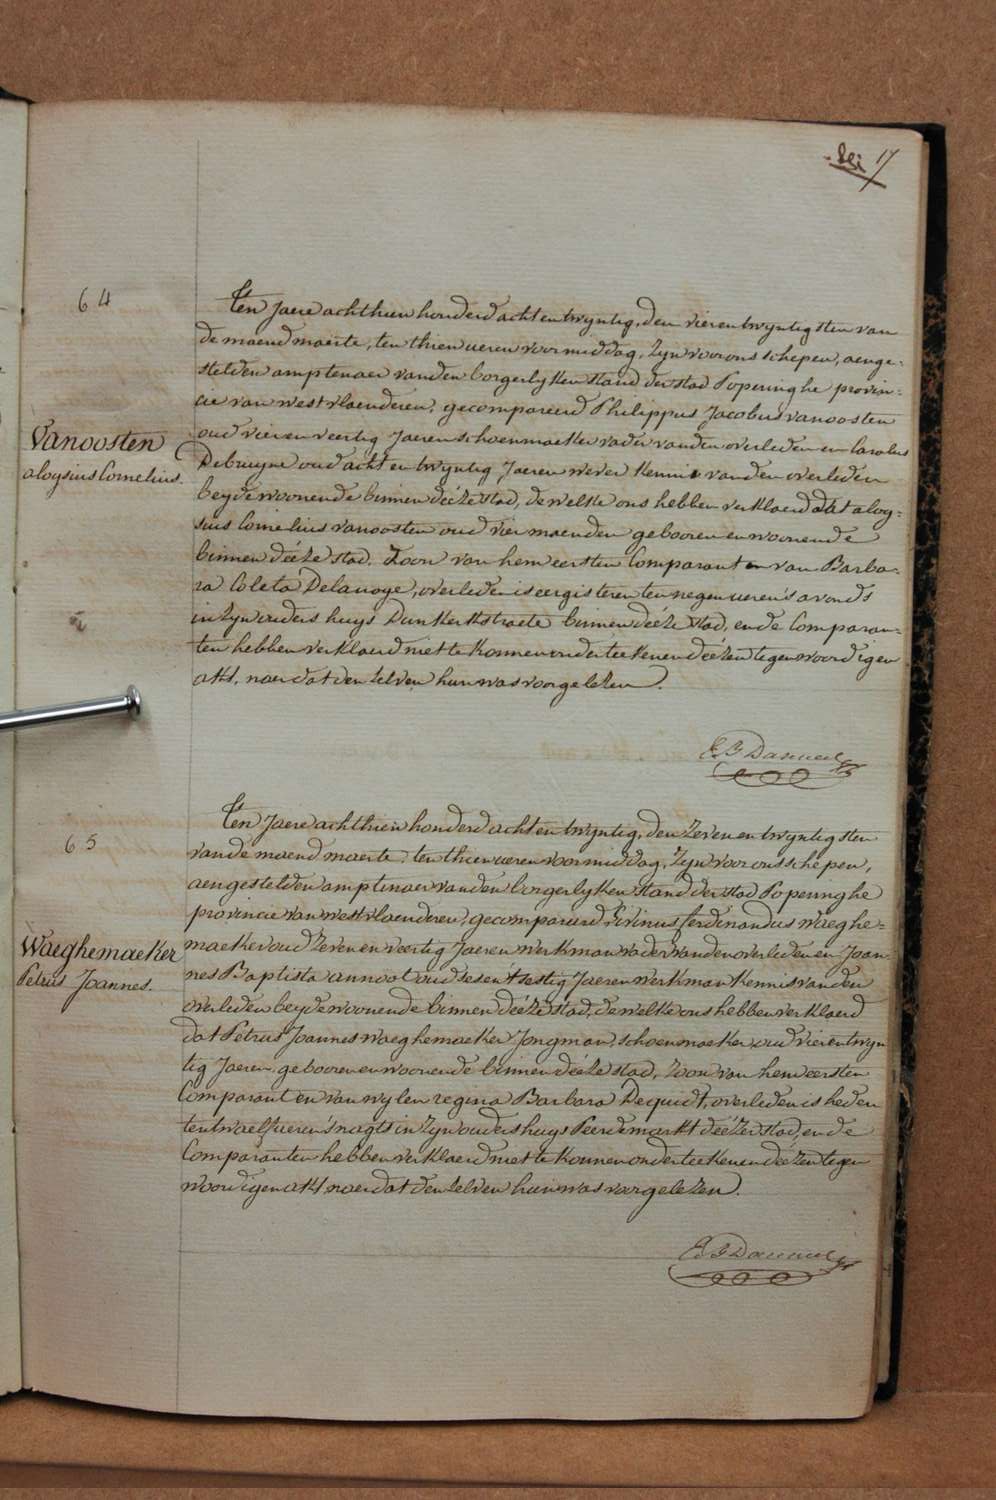 17
64
Ten Jaere achthien honderd acht en twyntig, den vier en twyntigsten van
de maend maerte, ten thien ueren voormiddag, Zyn voor ons schepen, aenge-
stelden amptenaer van den borgerlyken stand der stad Poperinghe provin-
cie van westvlaenderen, gecompareerd Philippus Jacobus vanoosten
Vanoosten
aloysius Cornelius.
oud vier en veertig Jaeren schoenmaeker vader van den overleden en Carolus
Debruyne oud acht en twyntig Jaeren wever kennis van den overleden
beyde woonende binnen déeze stad, dewelke ons hebben verklaerd dat aloy-
sius Cornelius vanoosten oud vier maenden gebooren en woonende
binnen déeze stad, Zoon van hem eersten Comparant en van Barba-
ra Coleta Delanoye, overleden is eergisteren ten negen ueren s'avonds
in Zyn ouders huys Dunkerkstraete binnen déeze stad, en de Comparan-
ten hebben verklaerd niet te konnen onderteekenen déezen tegenwoordigen
akt, naer dat den zelven hun was voorgelezen.
65
Ten Jaere achthien honderd acht en twyntig, den zeven en twyntigsten
van de maend maerte ten thien ueren voormiddag, Zyn voor ons schepen,
aengestelden amptenaer van den borgerlyken stand der stad Poperinghe
provincie van westvlaenderen, gecompareerd Livinus ferdinandus waeghe-
Waeghemaeker
Petrus Joannes.
maeker oud zeven en veertig Jaeren werkman vader van den overleden en Joan-
nes Baptista annoot oud sesen't sestig Jaeren werkman kennis van den
overleden beyde woonende binnen déeze stad, dewelke ons hebben verklaerd
dat Petrus Joannes waeghemaeker Jongman, schoenmaeker, oud vier en twyn
tig Jaeren, gebooren en woonende binnen déeze stad, Zoon van hem eersten
Comparant en van wylen regina Barbara Dequidt, overleden is heden
ten twaelf ueren s'nagts in Zyn ouders huys Peerdemarkt déeze stad, en de
Comparanten hebben verklaerd niet te konnen onderteekenen déezen tegen
woordigen akt, naer dat den zelven hun was voorgelezen.